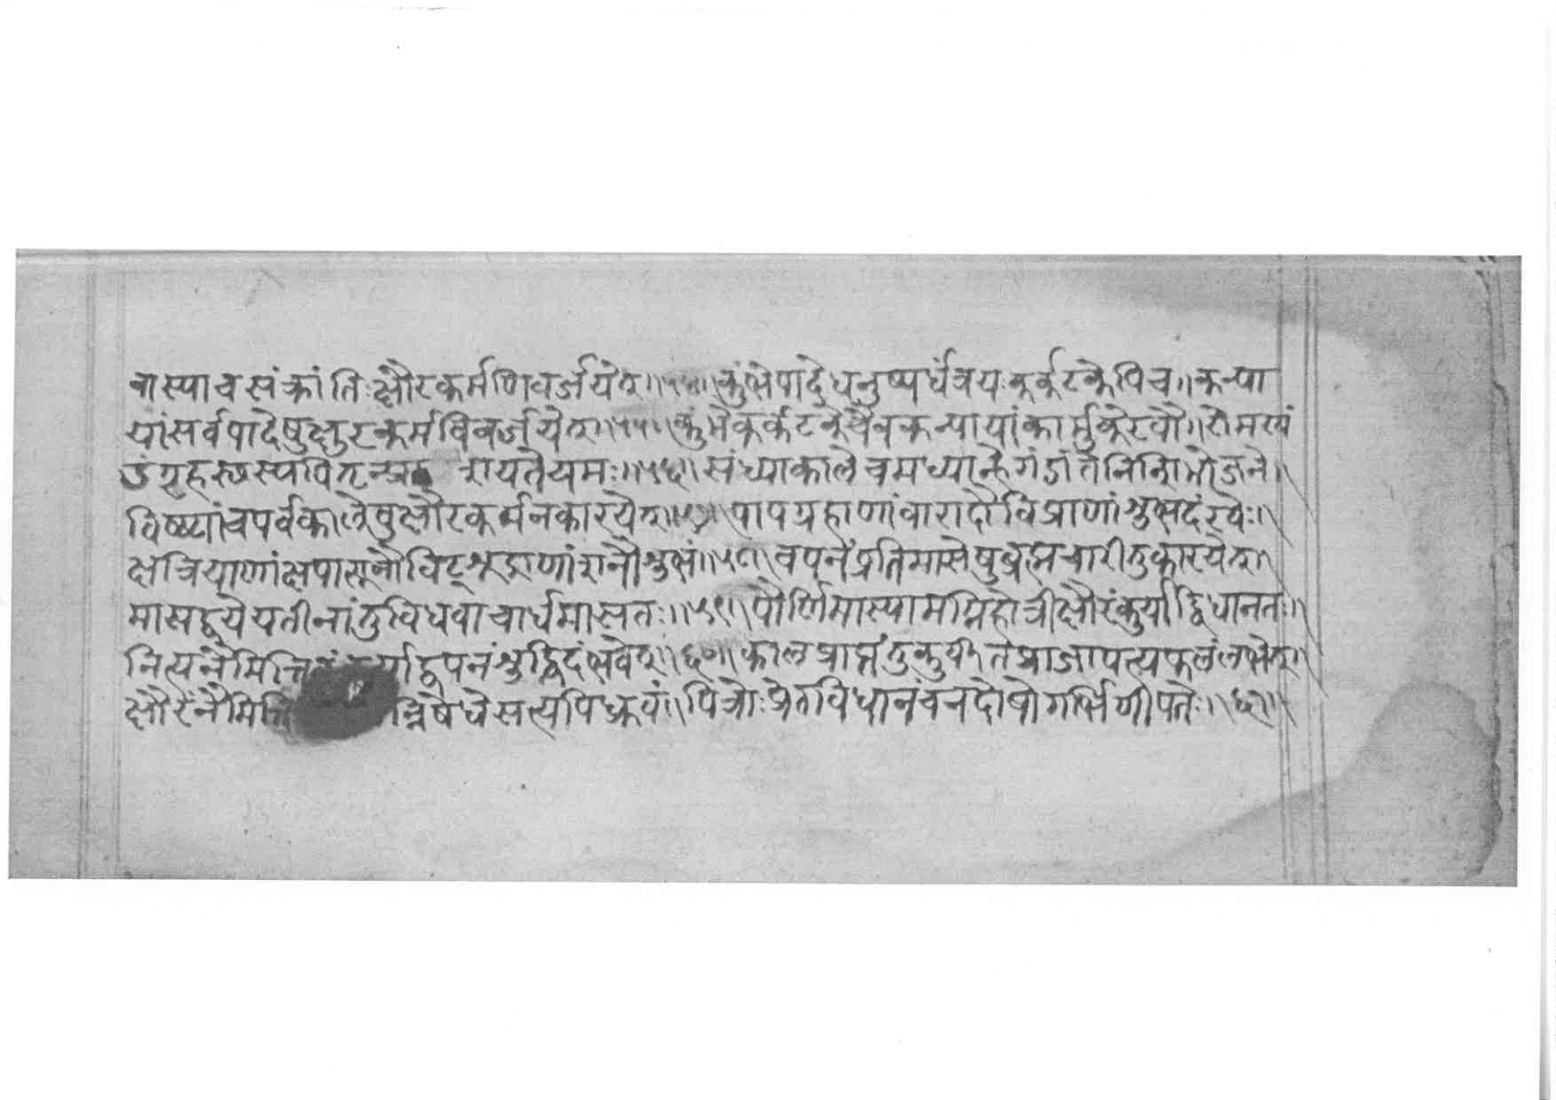 वास्याच संक्रांतिःक्षौरकर्मणिवर्जयेत्॥५४॥कुंभेपादेधनुष्यर्धंत्रयःकर्कटकेपिच॥कन्या
यांसर्वपादेषुक्षुरकर्मविवर्जयेत्॥५५॥कुंभेकर्कटकेचैवकन्यायांकार्मुकेरवौ॥रोमखं
डंगृहस्थस्यपितॄन् यतेयमः॥५६॥संध्याकालेचमध्यान्हे भोजने॥
विष्ट्यांचपर्वकालेषुक्षौरकर्मनकारयेत्॥५७॥पापग्रहाणांवारादौविप्राणांशुभदंरवेः॥
क्षत्रियाणांक्षपासूनौविट्शूद्राणांशनौशुभं॥५८॥वपनंप्रतिमासेषुब्रह्मचारीतुकारयेत्॥
मासद्वयेयतीनांतुविधवाचार्धमासतः॥५९॥पौर्णिमास्यामग्निहोत्रीक्षौरंकुर्याद्विधानतः॥
नित्यंनैमित्ति र्याद्वपनंशुद्धिदंभवेत्॥६०॥कालप्राप्तंतुकुर्वीतप्राजापत्यफलंलभेत्॥
क्षौरंनैमित्ति न्निषेधेसत्यपिध्रुवं॥पित्रोःप्रेतविधानंचनदोषोगर्भिणीपतेः॥६१॥